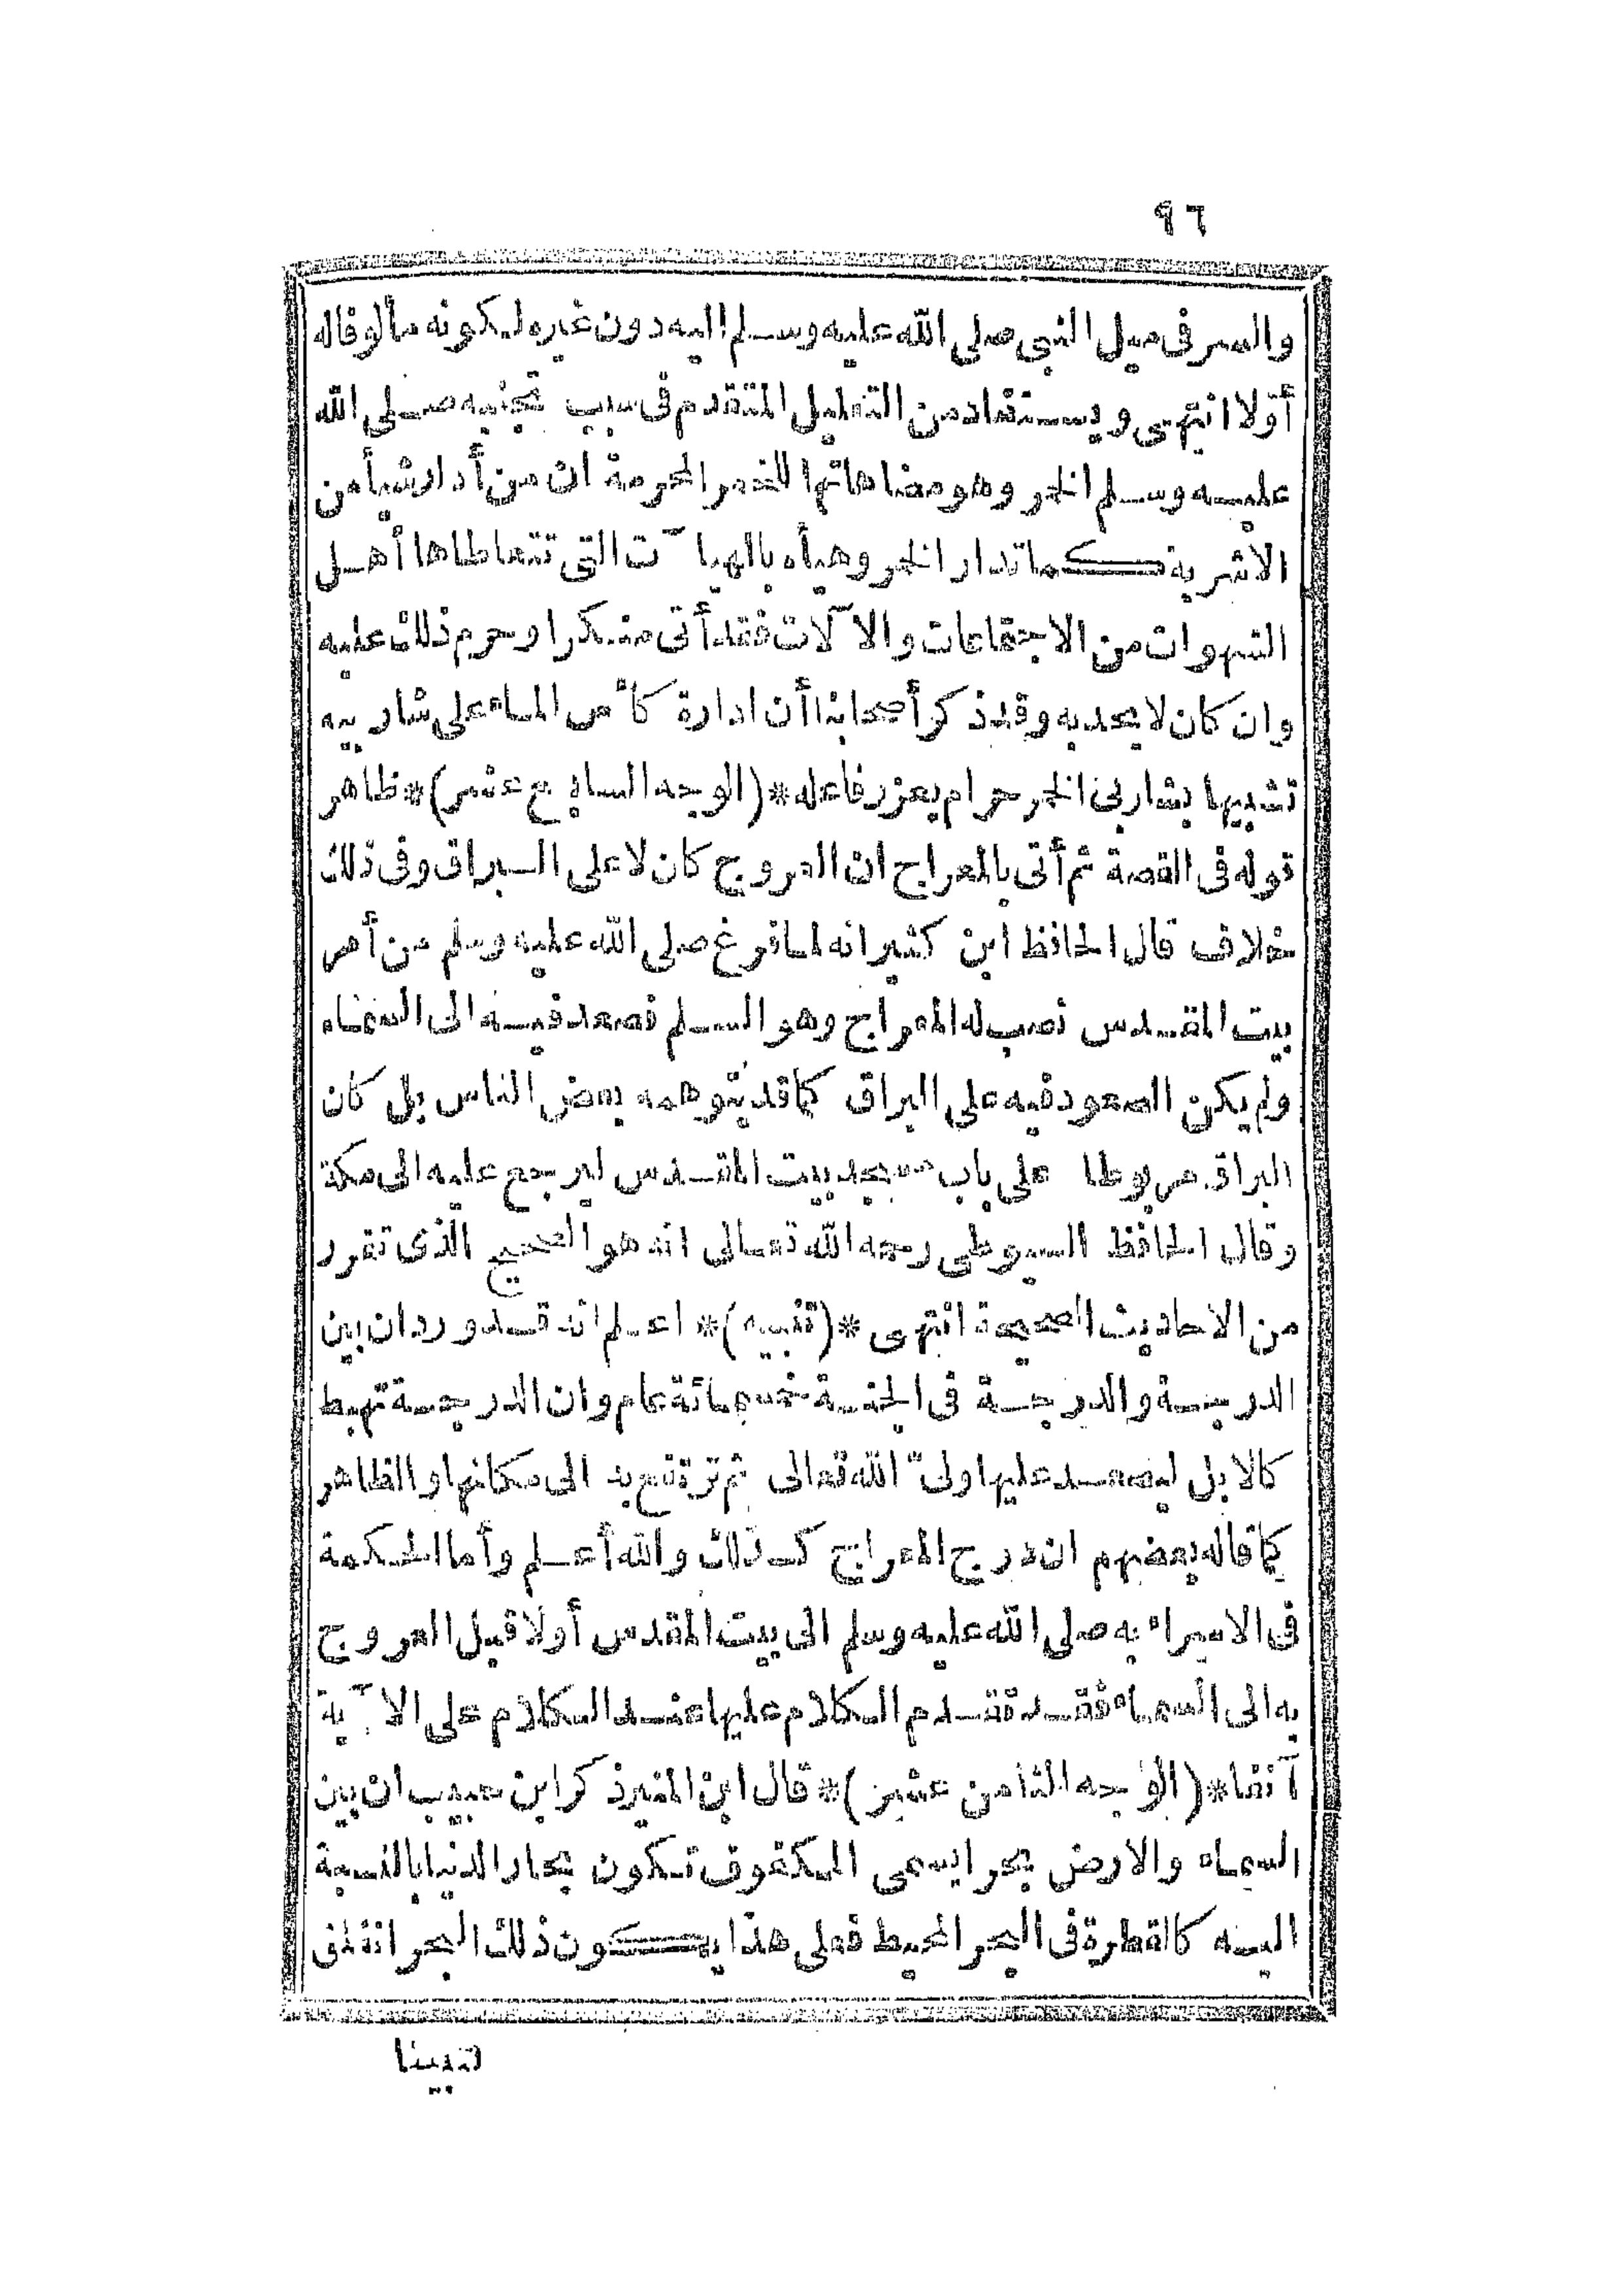 ٩٦
والسر فى ميل النبى صلى الله عليه وسلم اليه دون غيره ليكونه مألوفاله
أوّلا انتهى ويستفاد من التعليل المتقدم فى سبب تجنبه صلى الله
عليه وسلم الخمر وهو مضاهاتها للخمر المحرمة ان من أدار شيأ من
الاشربة كما تدار الخمر وهيأه بالهيا ٓت التى تتعاطاها أهل
الشهوات من الاجتماعات والا ٓلات فقد أتى منكرا وحرم ذلك عليه
وان كان لا يحد به وقد ذكر أصحابنا أن ادارة كأس الماء على شاربيه
تشبيها بشاربى الخمر حرام يعزر فاعله *(الوجه السابع عشر)* ظاهر
قوله فى القصة ثم أتى بالمعراج ان العروج كان لا على البراق وفى ذلك
خلاف قال الحافظ ابن كثير انه لما فرغ صلى الله عليه وسلم من أمر
بيت المقدس نصب له المعراج وهو السلم فصعد فيه الى السماء
ولم يكن الصعود فيه على البراق كما قد يتوهمه بعض الناس بل كان
البراق مربوطا على باب مسجد بيت المقدس ليرجع عليه الى مكة
وقال الحافظ السيوطى رحمه الله تعالى انه هو الصحيح الذى تقرر
من الاحاديث الصحيحة انتهى *(تنبيه)* اعلم انه قد ورد ان بين
الدرجة والدرجة فى الجنة خمسمائة عام وان الدرجة تهبط
كالابل ليصعد عليها ولىّ الله تعالى ثم ترتفع به الى مكانها والظاهر
كما قاله بعضهم ان درج المعراج كذلك والله أعلم وأما الحكمة
فى الاسراء به صلى الله عليه وسلم الى بيت المقدس أولا قبل العروج
به الى السماء فقد تقدم الكلام عليها عند الكلام على الا ٓية
آنفا *(الوجه الثامن عشر)* قال ابن المنير ذكر ابن حبيب ان بين
السماء والارض بحرا يسمى المكفوف تكون بحار الدنيا بالنسبة
اليه كالقطرة فى البحر المحيط فعلى هذا يكون ذلك البحر انفلق
لنبينا